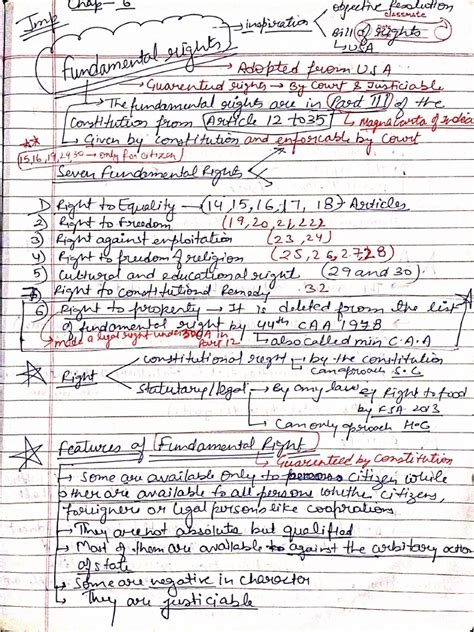 Chap - 6
Imp
objective Resolution
classmate
inspiration
Bill of Rights
↳ USA
Fundamental rights
→ Adopted from USA
→ Guarented rights → By Court & Justiciable
→ The fundamental rights are in Part III of the
Constitution from Article 12 to 35 → Magna Carta of India
→ Given by constitution and enforcable by Court
15,16,19,29,30 → only for citizen
Seven Fundamental Rights
1) Right to Equality — (14, 15, 16, 17, 18) Articles
2) Right to Freedom (19, 20, 21, 22)
3) Right against enploitation (23, 24)
4) Right to freedom of religion (25, 26, 27 28)
5) Cultural and educational right (29 and 30)
Right to constitutiond Remedy 32
6) Right to property → It is deleted from the list
of fundamental right by 44th CAA 1978
→ made a legal right under 300A Part 12
↳ also called mini C.A.A
Right
constitutional right → by the constitution
can approach S.C
Statutary/legal → By any law eg Right to food
by FSA 2013
↳ Can only aproach H.C
Features of Fundamental Right
↳ Guarenteed by Constitution
→ Some are available only to citizen while
other are available to all persons whether citizens,
foreigners or legal persons like cooprations
→ They are not absolute but qualified
→ Most of them are available against the arbitary action
of state
→ Some are negative in charactor
→ They are justiciable